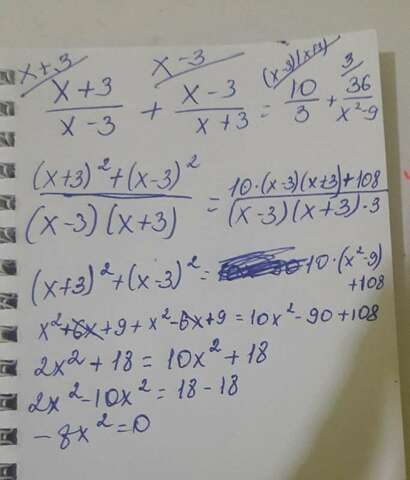 x+3 x-3 (x-3)(x+3) 3
x+3/x-3 + x-3/x+3 = 10/3 + 36/x²-9
(x+3)²+(x-3)²/(x-3)(x+3) = 10·(x-3)(x+3)+108/(x-3)(x+3)·3
(x+3)²+(x-3)²= 10·(x²-9)
+108
x²+6x+9+x²-6x+9=10x²-90+108
2x²+18=10x²+18
2x²-10x²=18-18
-8x²=0